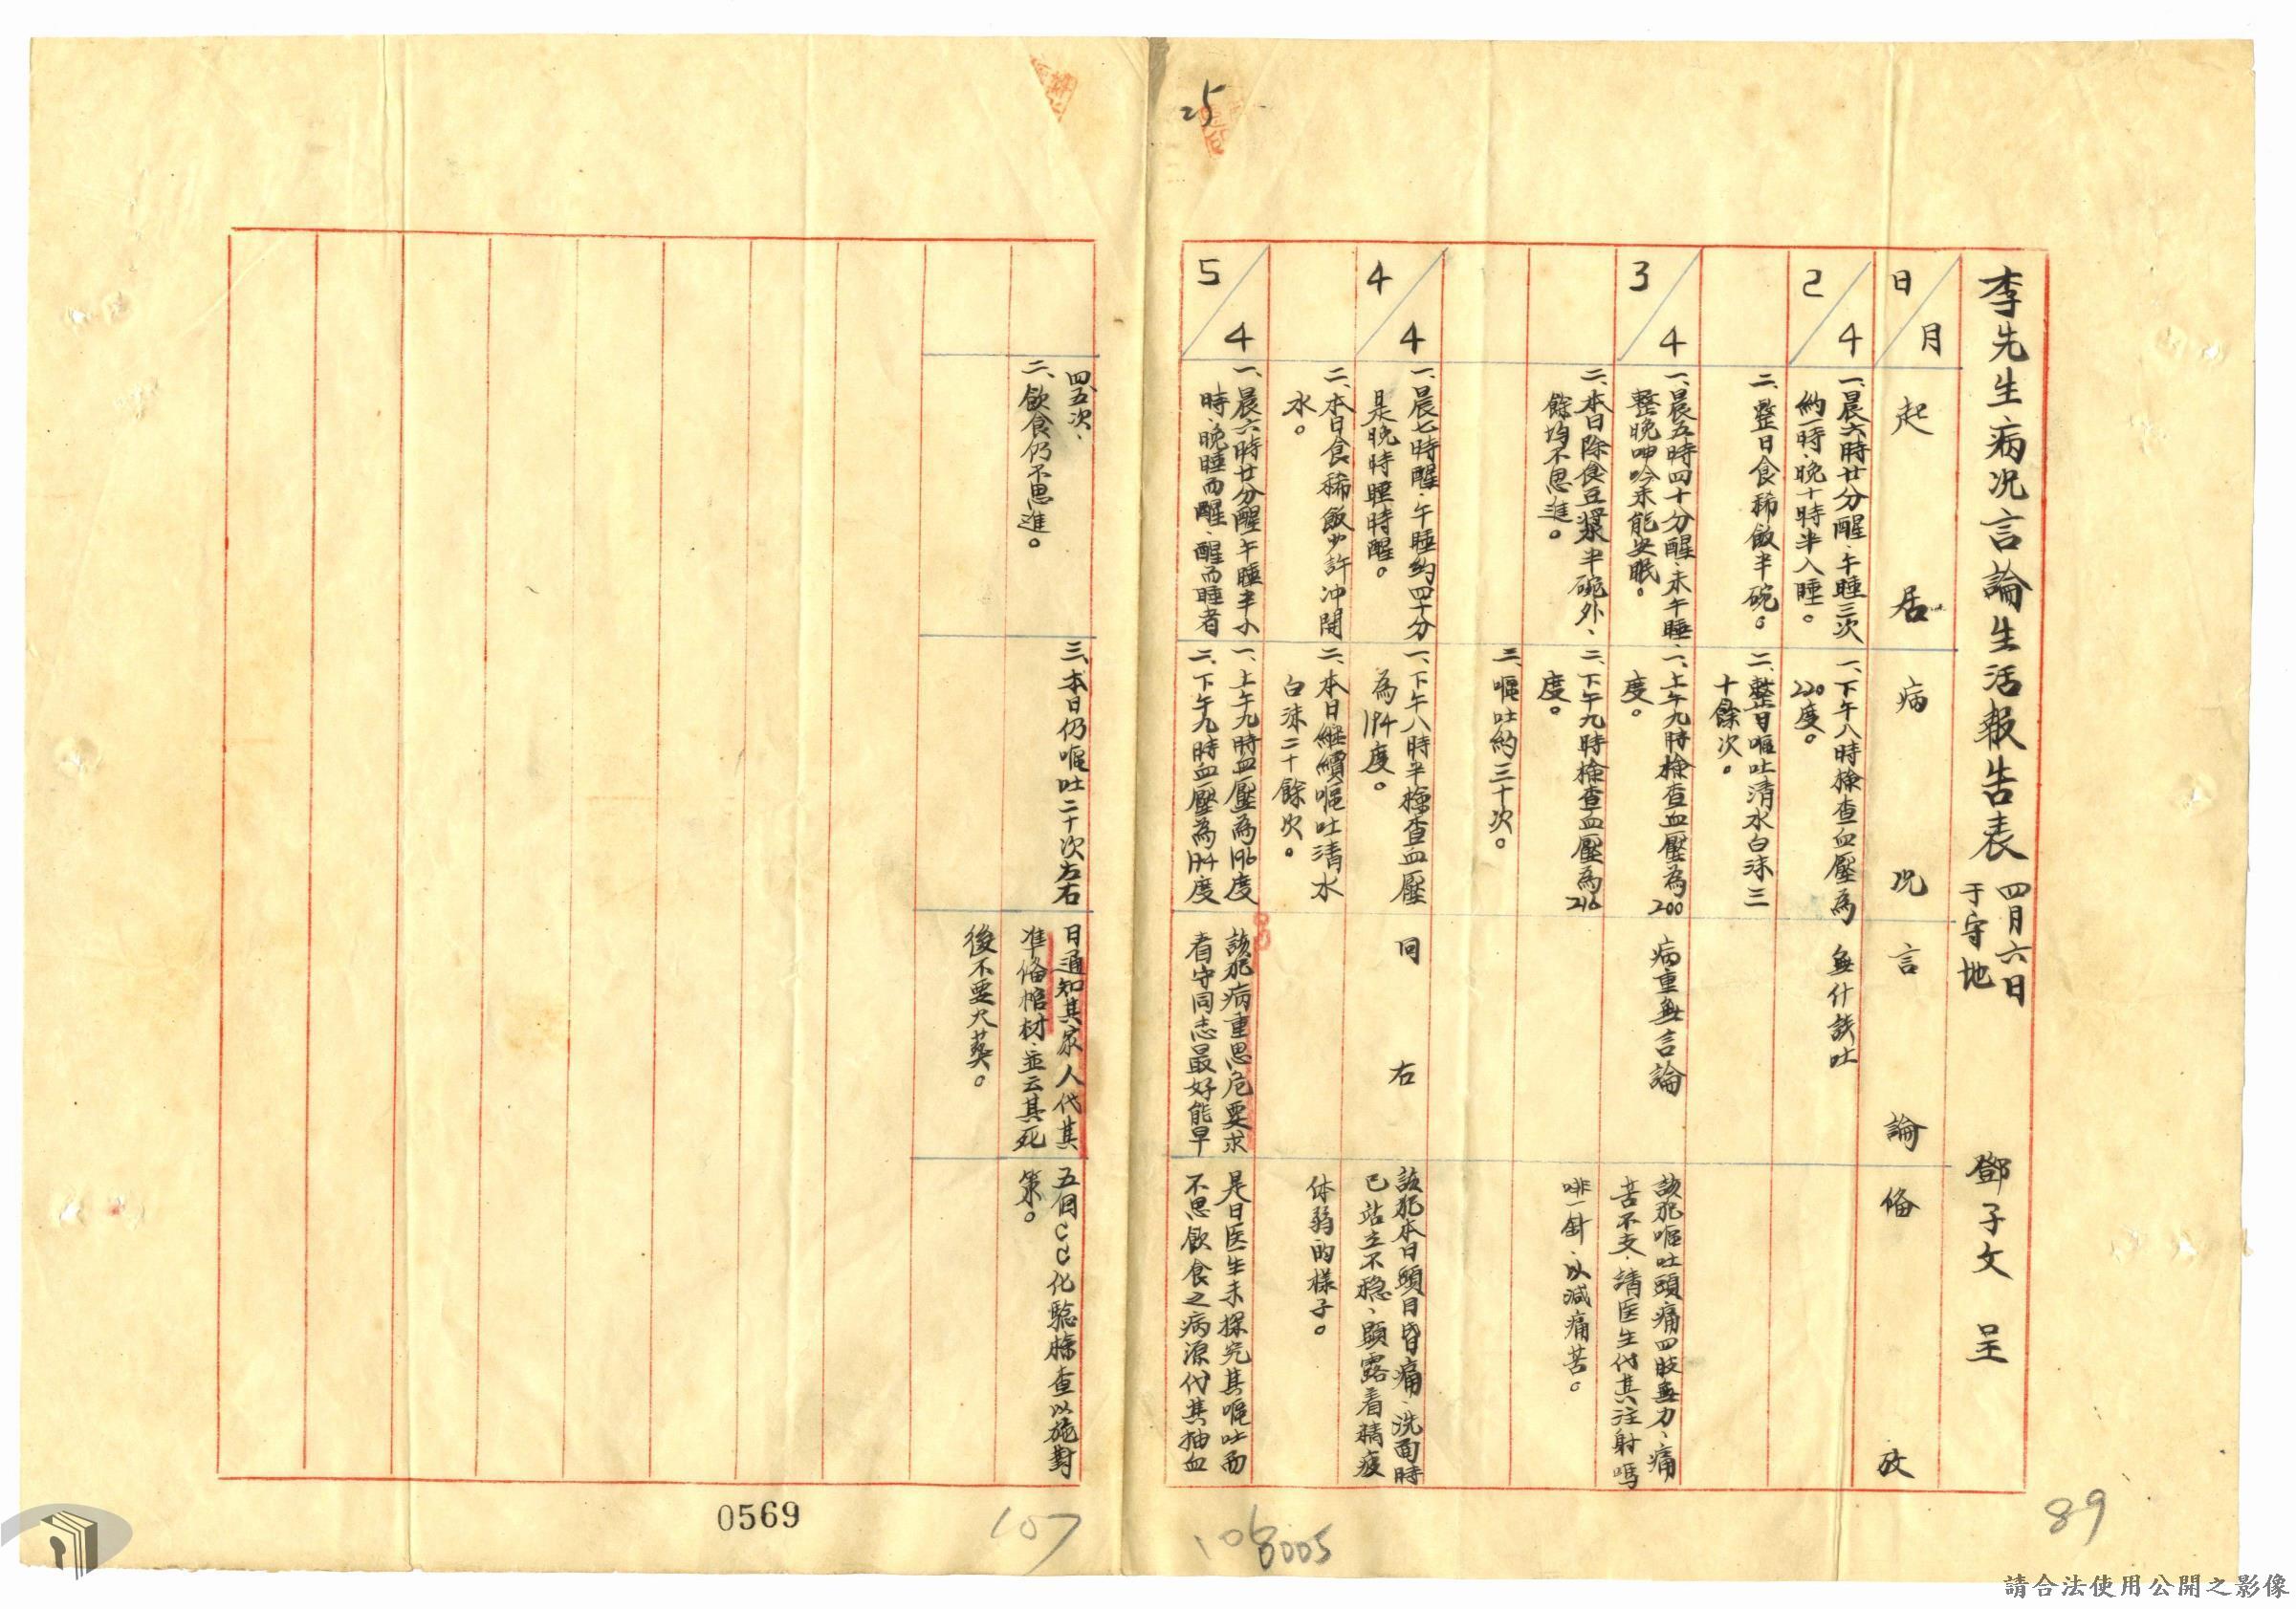 李先生病況言論生活報告表 四月六日于守地 鄧子文 呈
日／月
起居
病況
言論
俻攷
2／4
一、晨六時廿分醒、午睡三次
約一時、晚十時半入睡。
二、整日食稀飯半碗。
一、下午八時檢查血壓為
220度。
二、整日嘔吐清水白沫三
十餘次。
無什談吐
3／4
一、晨五時四十分醒、未午睡、
整晚呻吟未能安眠。
二、本日除食豆漿半碗外、
餘均不思進。
一、上午九時檢查血壓為200
度。
二、下午九時檢查血壓為210
度。
三、嘔吐約三十次。
病重無言論
該犯嘔吐頭痛四肢無力、痛
苦不支、請医生代其注射嗎
啡一針、以減痛苦。
4／4
一、晨七時醒、午睡約四十分
是晚時睡時醒。
二、本日食稀飯少許冲開
水。
一、下午八時半檢查血壓
為194度。
二、本日繼續嘔吐清水
白沫二十餘次。
同右
該犯本日頭目昏痛、洗面時
已站立不穩、顕露着精疲
体弱的樣子。
5／4
一、晨六時廿分醒午睡半小
時、晚睡而醒、醒而睡者
四、五次、
二、飲食仍不思進。
一、上午九時血壓為196度
二、下午九時血壓為194度
三、本日仍嘔吐二十次左右
該犯病重思危要求
看守同志最好能早
日通知其家人代其
準俻棺材、並云其死
後不要火葬。
是日医生未探究其嘔吐而
不思飲食之病源代其抽血
五個CC化驗檢查以施對
策。
25
0569
107
106
8005
89
請合法使用公開之影像